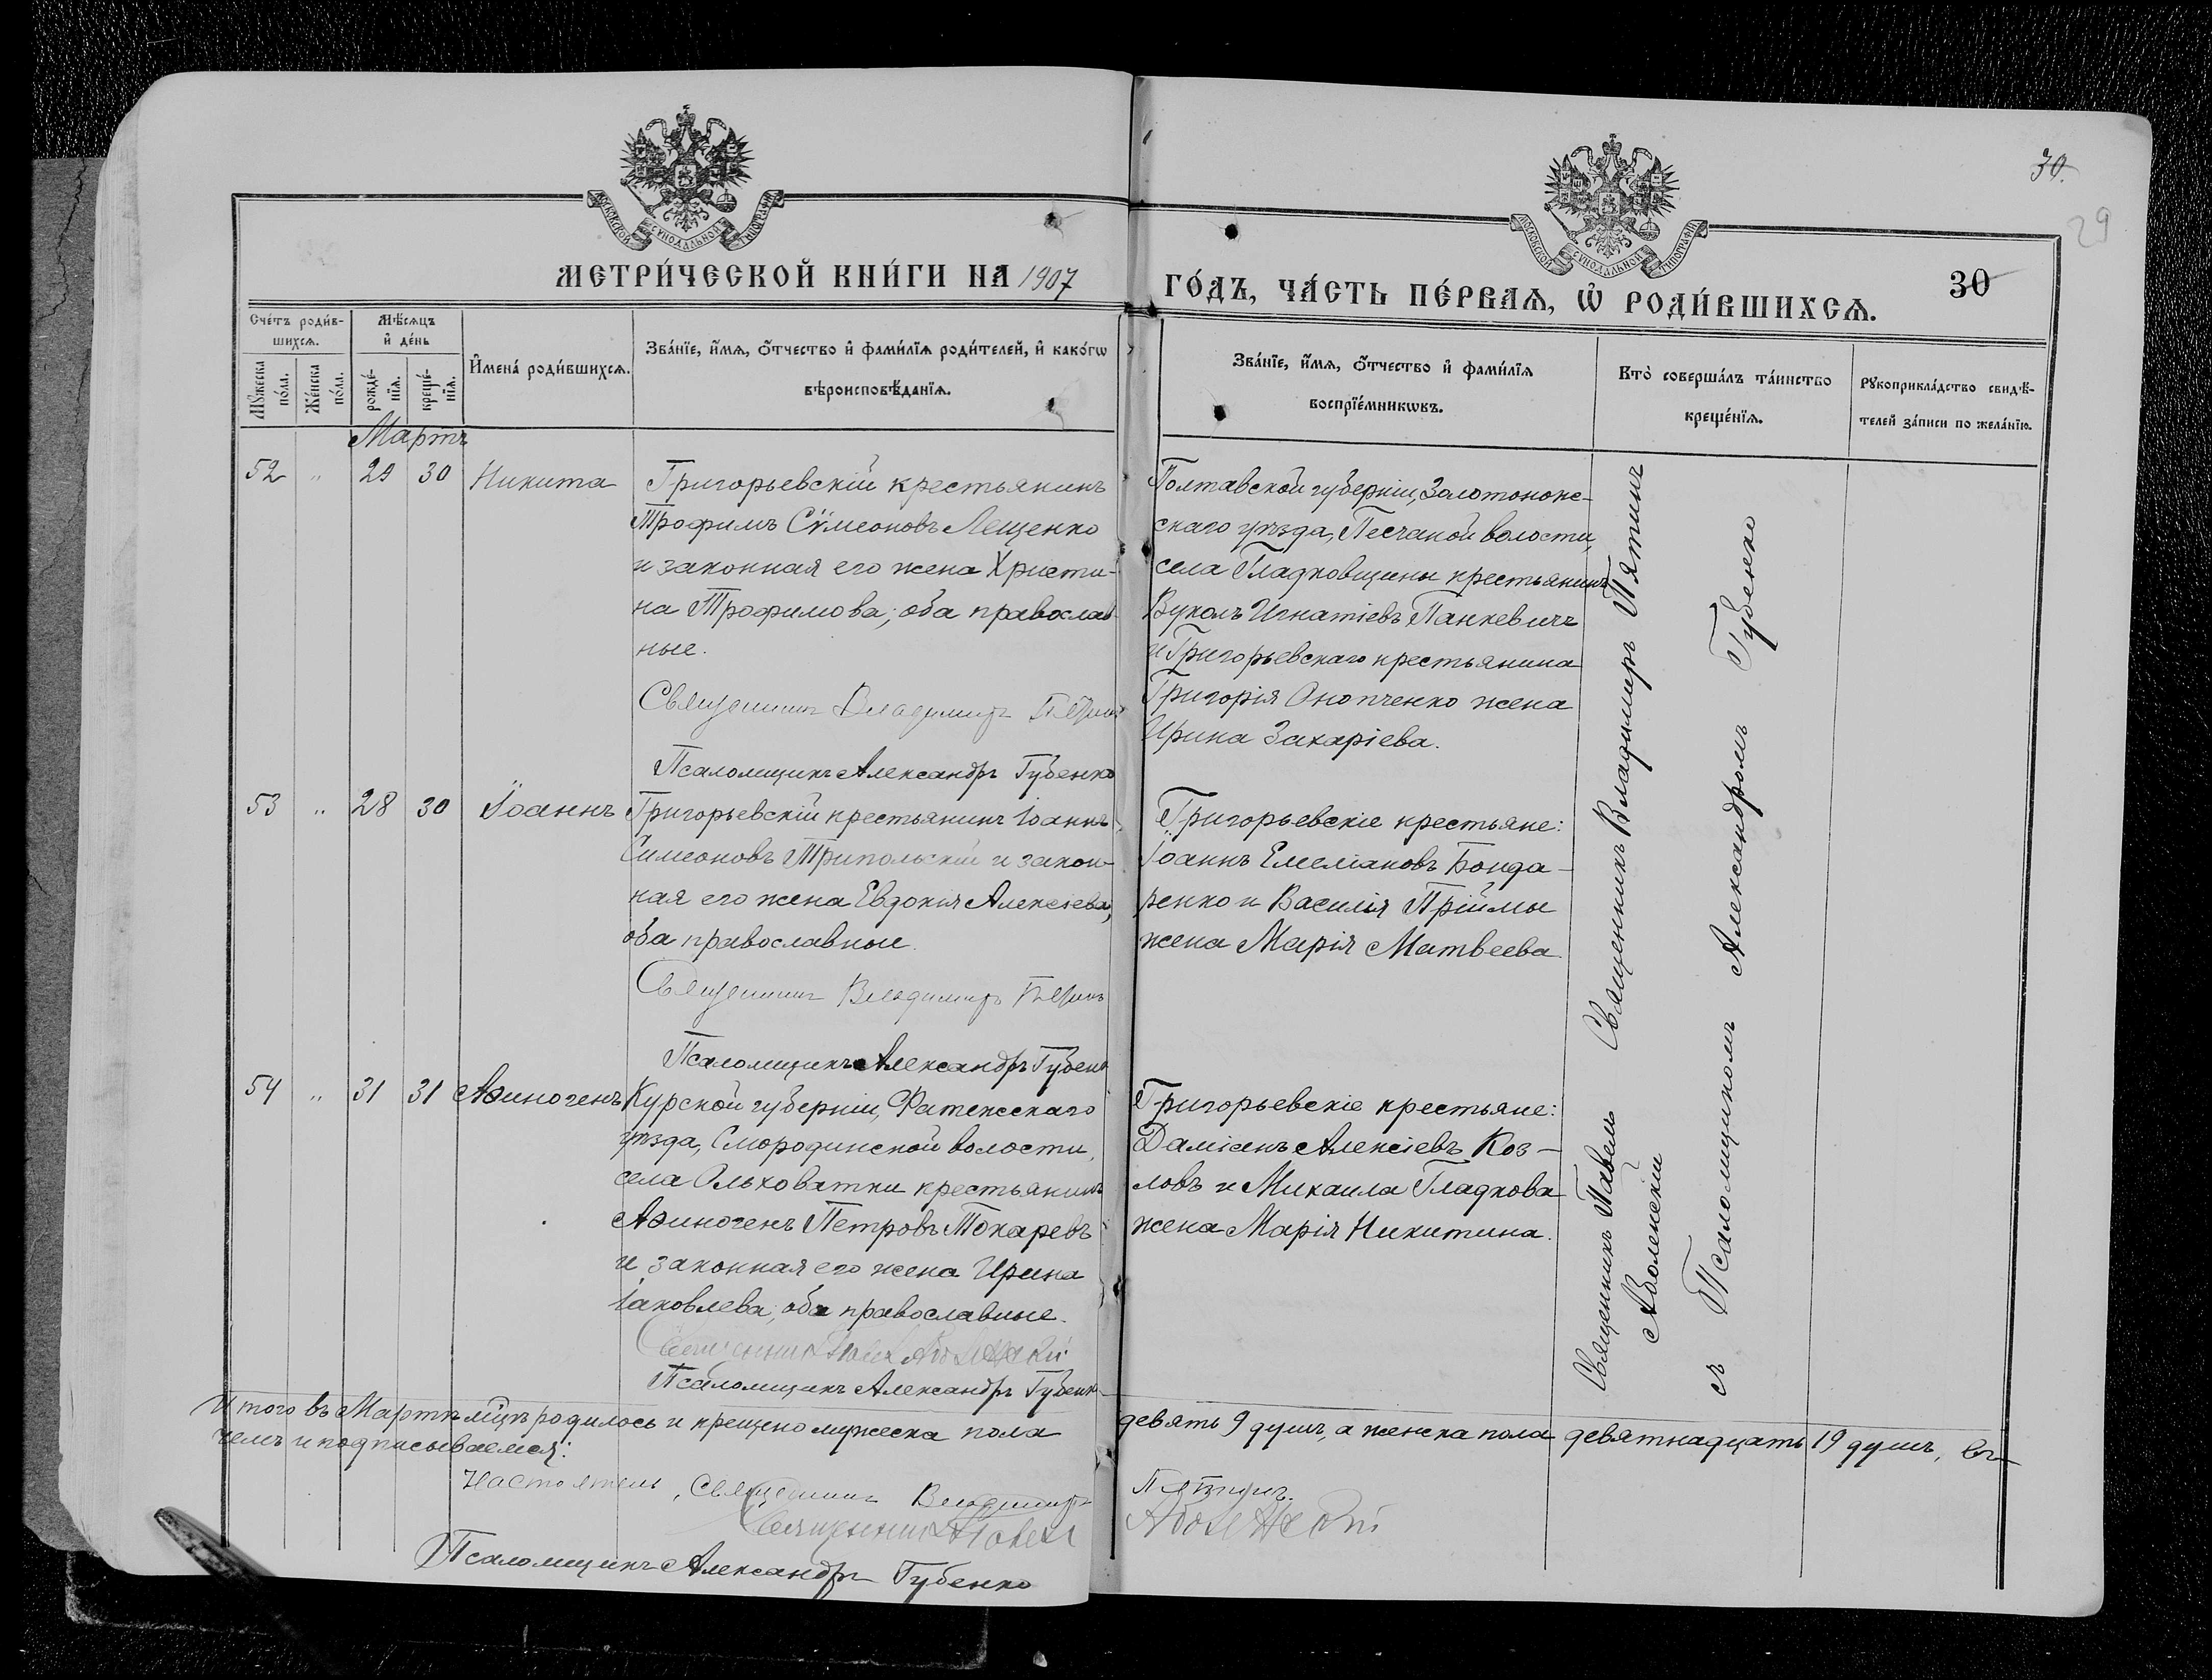 30.
29
МОСКОВСКОЙ СУНОДАЛЬНОЙ ТИПОГРАФІИ
МОСКОВСКОЙ СУНОДАЛЬНОЙ ТИПОГРАФІИ
МЕТРИ́ЧЕСКОЙ КНИ́ГИ НА 1907
ГО́ДЪ, ЧА́СТЬ ПЕ́РВАѦ, Ѡ РОДИ́ВШИХСѦ.
30
Сче́тъ роди́в-
шихсѧ.
Мꙋ́жеска
по́ла.
Же́нска
по́ла.
Мѣ́сѧцъ
и де́нь
рожде́-
нїѧ.
креще́-
нїѧ.
Имена́ роди́вшихсѧ.
Зва́нїе, и́мѧ, ѻ́тчество и фами́лїѧ роди́телей, и како́гѡ
вѣроисповѣ́данїѧ.
Зва́нїе, и́мѧ, ѻ́тчество и фами́лїѧ
воспрїе́мникѡвъ.
Кто̀ соверша́лъ та́инство
креще́нїѧ.
Рꙋкоприкла́дство свидѣ́-
телей за́писи по жела́нїю.
Мартъ
52 " 29 30 Никита
Григорьевскій крестьянинъ
Трофимъ Сѵмеоновъ Лещенко
и законная его жена Христи-
на Трофимова; оба православ-
ные.
Священникъ Владимиръ Пятинъ
Псаломщикъ Александръ Губенко
Полтавской губерніи, Золотонош-
скаго уѣзда, Песчаной волости,
села Гладковщины крестьянинъ
Вуколъ Игнатіевъ Панкевичъ
и Григорьевскаго крестьянина
Григорія Онопченко жена
Ирина Захаріева.
53 " 28 30 Іоаннъ
Григорьевскій крестьянинъ Іоаннъ
Симеоновъ Трипольскій и закон-
ная его жена Евдокія Алексіева,
оба православные.
Священникъ Владимиръ Пятинъ
Псаломщикъ Александръ Губенко
Григорьевскіе крестьяне:
Іоаннъ Емеліановъ Бонда-
ренко и Василія Пріймы
жена Марія Матвеева.
54 " 31 31 Аѳиногенъ
Курской губерніи, Фатежскаго
уѣзда, Смородинской волости,
села Ольховатки крестьянинъ
Аѳиногенъ Петровъ Токаревъ
и законная его жена Ирина
Іаковлева; оба православные.
Священникъ Павелъ
Псаломщикъ Александръ Губенко
Григорьевскіе крестьяне:
Даміанъ Алексіевъ Коз-
ловъ и Михаила Гладкова
жена Марія Никитина.
Священникъ Владимиръ Пятинъ
Священникъ Павелъ
съ Псаломщикомъ Александромъ Губенко
Итого въ Мартѣ мѣцѣ родилось и крещено мужеска пола девять 9 душъ, а женска пола девятнадцать 19 душъ, въ
чемъ и подписываемся:
Настоятель, Священникъ Владимиръ Пятинъ.
Священникъ Павелъ
Псаломщикъ Александръ Губенко